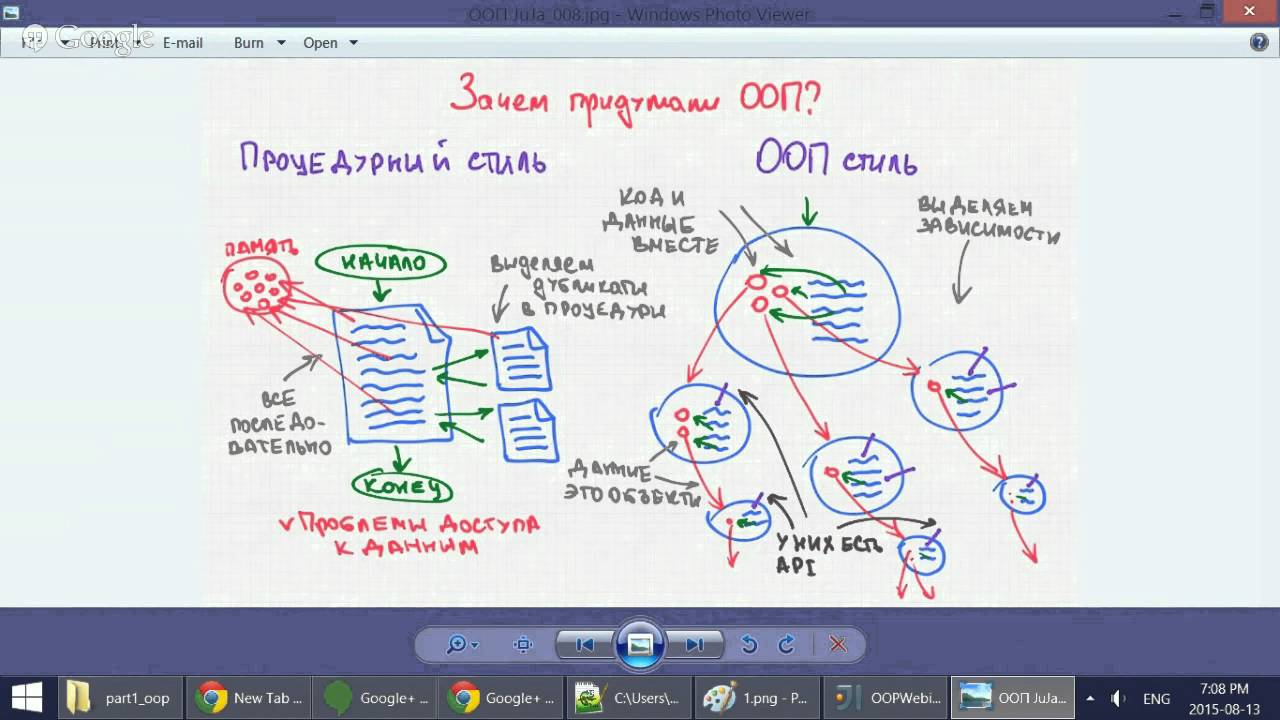 ООП JuJa_008.jpg - Windows Photo Viewer
Google
Print
E-mail
Burn
Open
Зачем придумали ООП?
Процедурный стиль
ООП стиль
КОД И
ДАННЫЕ
ВМЕСТЕ
ВЫДЕЛЯЕМ
ЗАВИСИМОСТИ
ПАМЯТЬ
НАЧАЛО
ВЫДЕЛЯЕМ
ДУБЛИКАТЫ
В ПРОЦЕДУРЫ
ВСЕ
ПОСЛЕДО-
ВАТЕЛЬНО
КОНЕЦ
ПРОБЛЕМЫ ДОСТУПА
К ДАННЫМ
ДАННЫЕ
ЭТО ОБЪЕКТЫ
У НИХ ЕСТЬ
API
part1_oop
New Tab ...
Google+ ...
Google+ ...
C:\Users\...
1.png - P...
OOPWebi...
ООП JuJa...
ENG
7:08 PM
2015-08-13